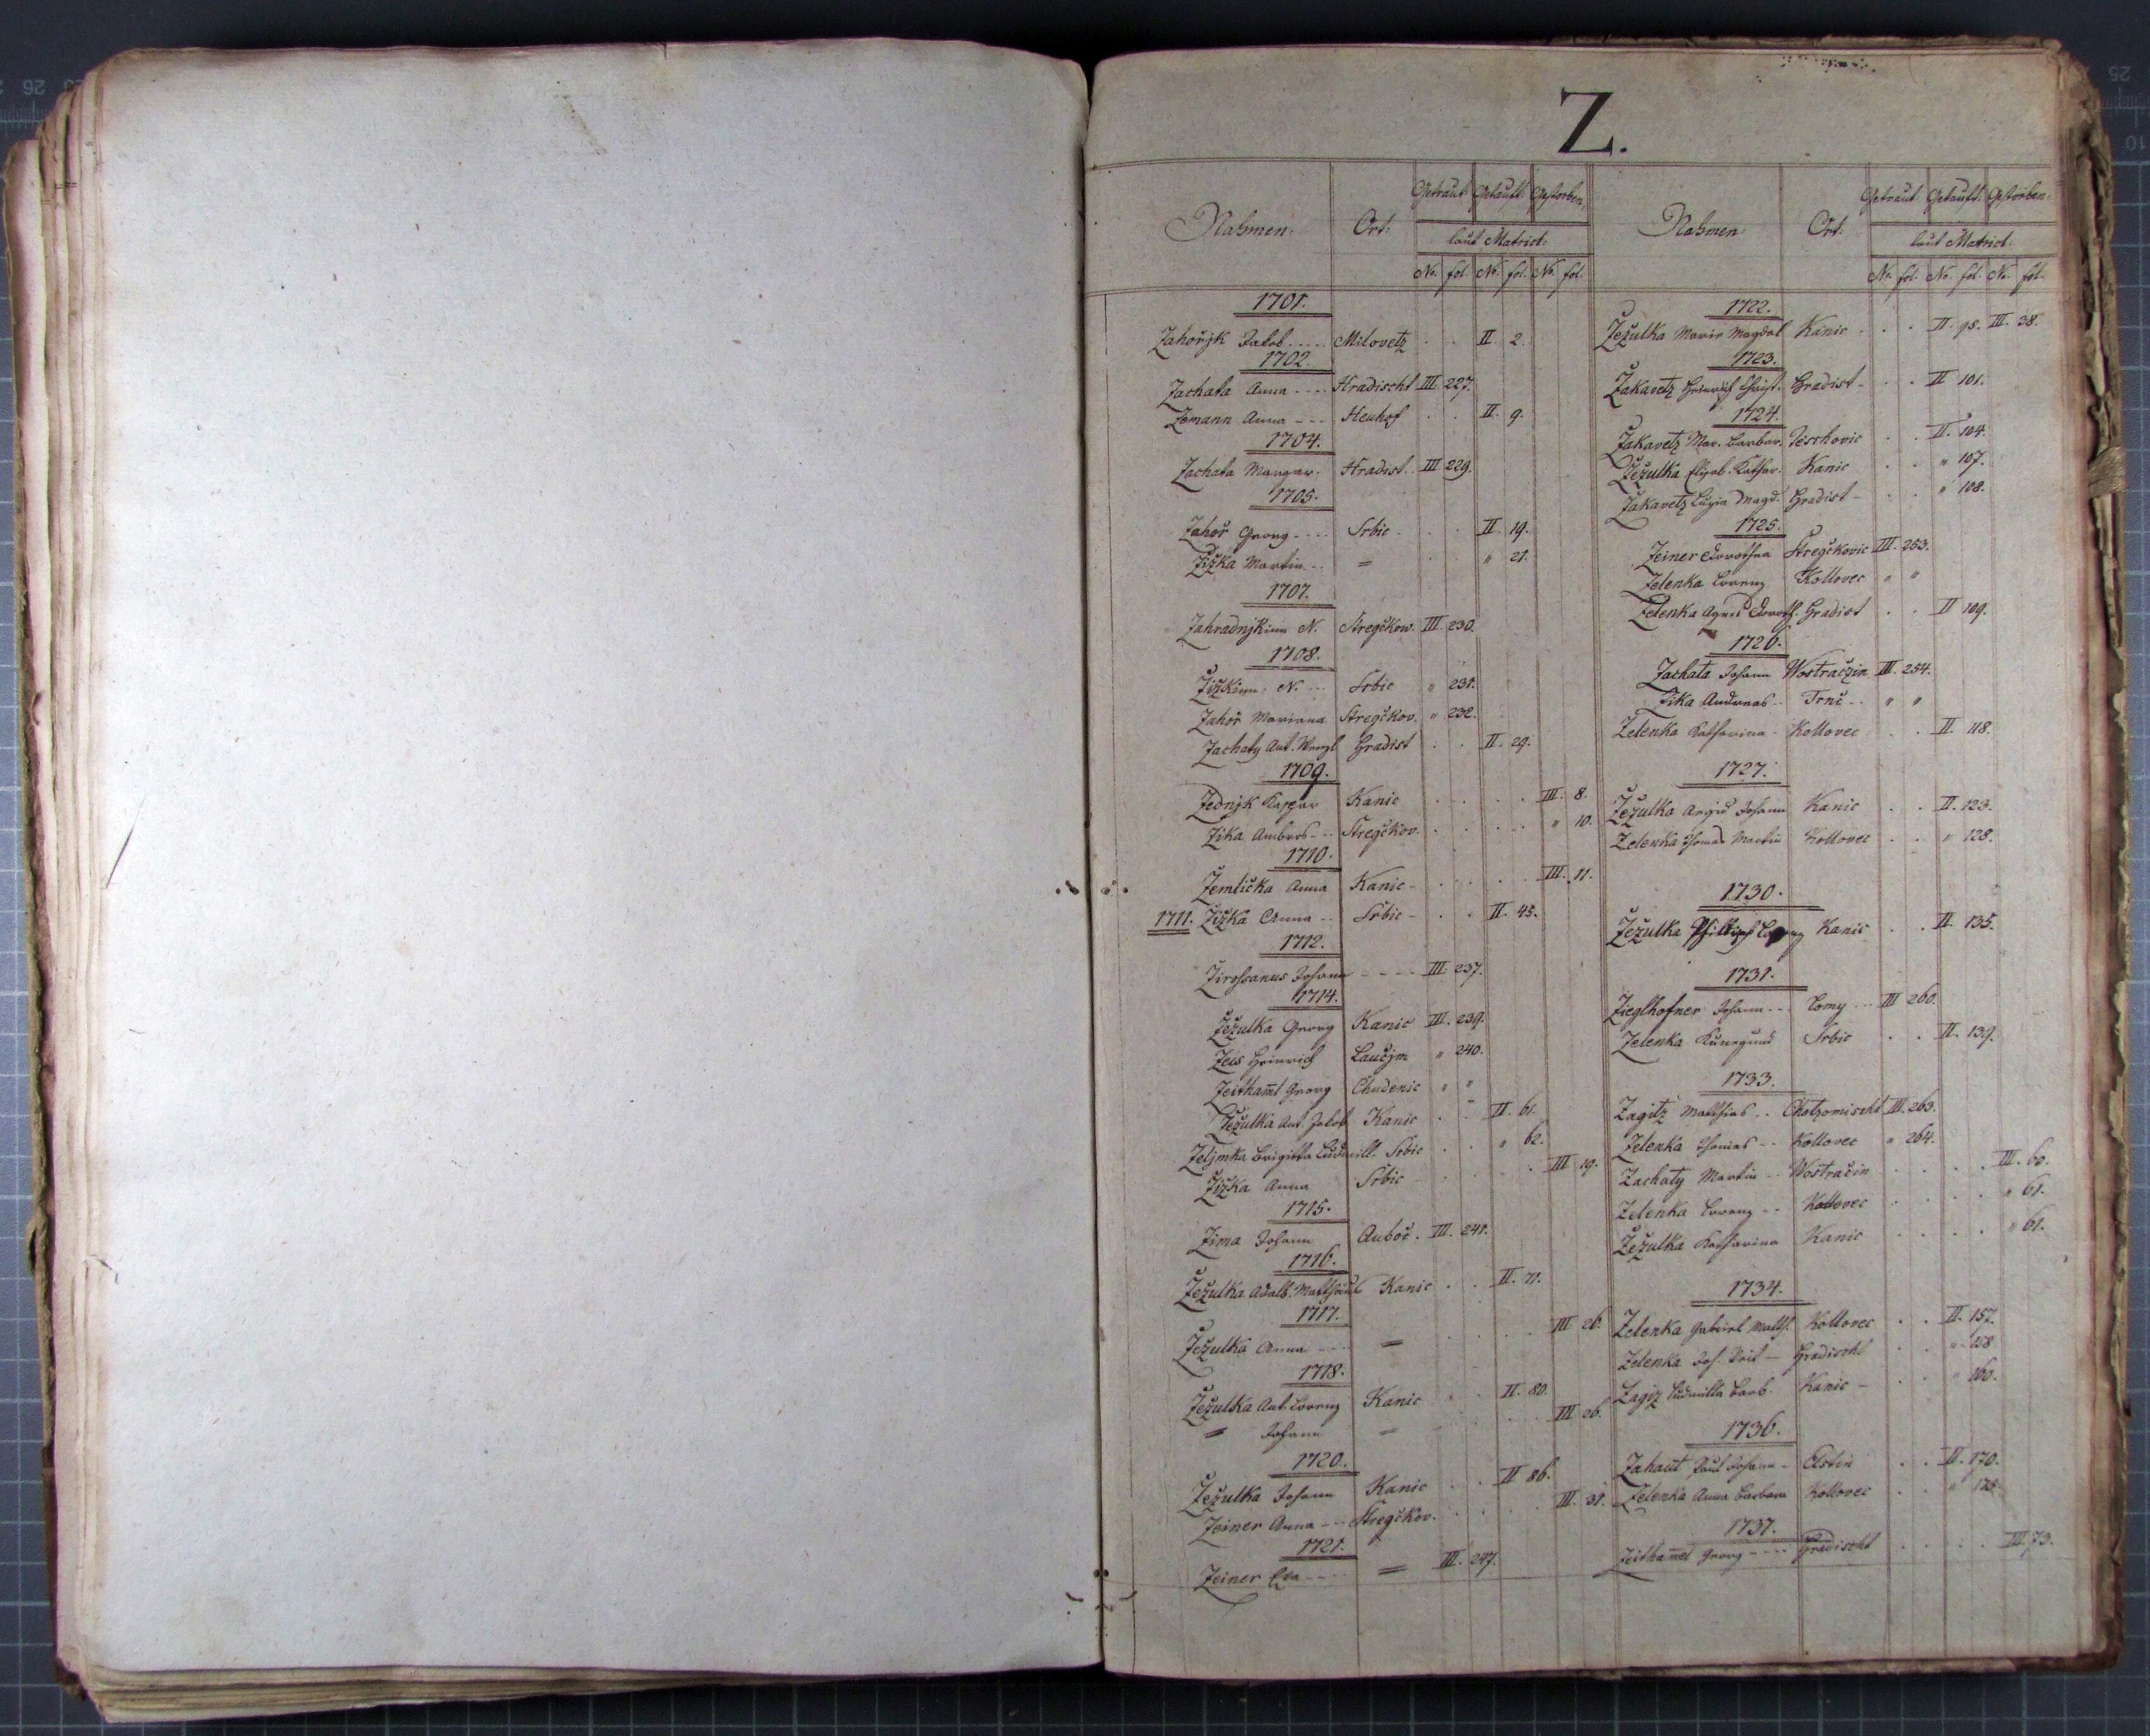 Z.
Nahmen: Ort: Getraut: Getauft: Gestorben:
laut Matrick:
No. fol. No. fol. No. fol.
1701.
Zahořjk Jakob .... Milovetz . . II. 2.
1702.
Zachata Anna ---- Hradischt III. 227.
Zemann Anna --- Neuhof . . II. 9.
1704.
Zachata Margar. Hradist. III 229.
1705.
Zahoř Georg .... Srbic . . II. 19.
Žižka Martin .. = . . " 21.
1707.
Zahradnjkinn N. Stregčkow. III. 230.
1708.
Žižkinn, N. ... Srbic " 231.
Zahoř Mariana Stregčkov. " 232.
Zachaty Ant. Wenzl Hradist . . II. 29.
1709.
Zednjk Kaspar Kanic . . . . III. 8.
Zika Ambros --- Stregčkov. . . . . " 10.
1710.
Zemlička Anna Kanic - . . . . III. 11.
1711. Žižka Anna -- Srbic - . . II. 45.
1712.
Johann ---- III. 237.
1714.
Žežulka Georg Kanic III. 239.
Zeis Heinrich Laučjm " 240.
Zeithaml Georg Chudenic " "
Žežulka Ant. Jakob Kanic . . II. 61.
Zeljmka Brigitta Ludmill. Srbic . . " 62.
Žižka Anna Srbic - . . . . III 19.
1715.
Zima Johann Auboč. III. 241.
1716.
Žežulka Adalb. Matthäus Kanic . . II. 71.
1717.
Žežulka Anna ---- = . . . . III 26.
1718.
Žežulka Ant. Lorenz Kanic . . II. 80.
= Johann = . . III 26.
1720.
Žežulka Johann Kanic . . II 86.
Zeiner Anna --- Stregčkov. . . . . III. 31.
1721.
Zeiner Eva ---- = III. 247.
Nahmen: Ort: Getraut: Getauft: Gestorben:
laut Matrick:
No. fol. No. fol. No. fol.
1722.
Žežulka Maria Magdal Kanic . . . II. 98. III. 38.
1723.
Zakavetz Heinrich Christ. Hradist - . . II 101.
1724.
Zakavetz Mar. Barbar. . . II. 104.
Žežulka Elisab. Kathar. Kanic . . " 107.
Zakavetz Luzia Magd. Hradist - . . " 108.
1725.
Zeiner Dorothea Stregčkovic III. 253.
Zelenka Lorenz Kollovec " "
Zelenka Agnes Doroth. Hradist . . II 109.
1726.
Zachata Johann Wostračzin III. 254.
Zika Andreas .. Trnč -- " "
Zelenka Katharina - Kollovec . . II. 118.
1727.
Žežulka Johann Kanic . . II. 123.
Zelenka Thomas Martin Kollovec . . " 128.
1730.
Žežulka Philipp Lorenz Kanic . . II. 135.
1731.
Zieglhofner Johann -- Lomy --- III 260.
Zelenka Kunegund Srbic . . II. 139.
1733.
Zagitz Matthias .. Chotzomischt III. 263.
Zelenka Thomas -- Kollovec " 264.
Zachaty Martin -- Wostračin . . . . III. 60.
Zelenka Lorenz -- Kollovec . . . . " 61.
Žežulka Katharina Kanic . . . . " 61.
1734.
Zelenka Gabriel Matth. Kollovec . . II. 157.
Zelenka Joh. Veit - Hradischt . . " 158.
Zagiz Ludmilla Barb. Kanic - . . " 160.
1736.
Zahaut Paul Johann - . . II. 170.
Zelenka Anna Barbara Kollovec . . "
1737.
Zeithaml Georg ---- Hradischt . . . . III 73.